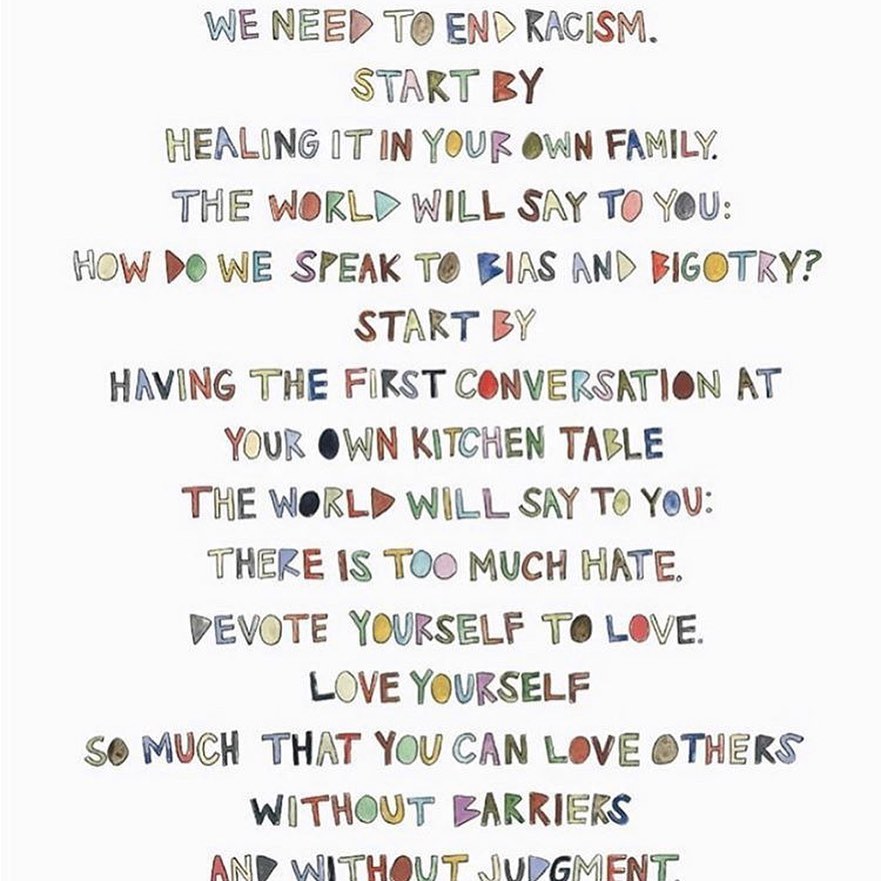 WE NEED TO END RACISM.
START BY
HEALING IT IN YOUR OWN FAMILY.
THE WORLD WILL SAY TO YOU:
HOW DO WE SPEAK TO BIAS AND BIGOTRY?
START BY
HAVING THE FIRST CONVERSATION AT
YOUR OWN KITCHEN TABLE
THE WORLD WILL SAY TO YOU:
THERE IS TOO MUCH HATE.
DEVOTE YOURSELF TO LOVE.
LOVE YOURSELF
SO MUCH THAT YOU CAN LOVE OTHERS
WITHOUT BARRIERS
AND WITHOUT JUDGMENT.